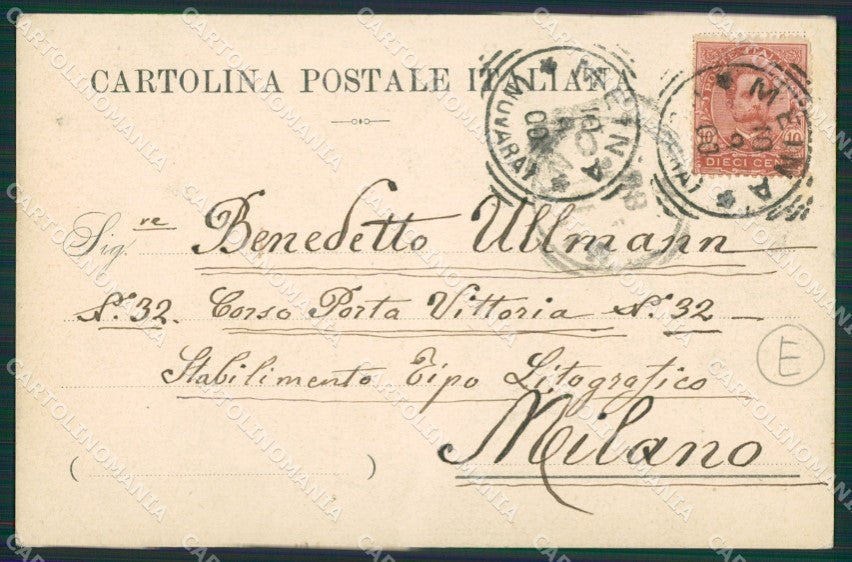 CARTOLINA POSTALE ITALIANA
MEINA
(NOVARA)
DIECI CENT
Sig.re Benedetto Ullmann
N.º 32. Corso Porta Vittoria N.º 32
Stabilimento Tipo Litografico
Milano
( )
E
CARTOLINOMANIA